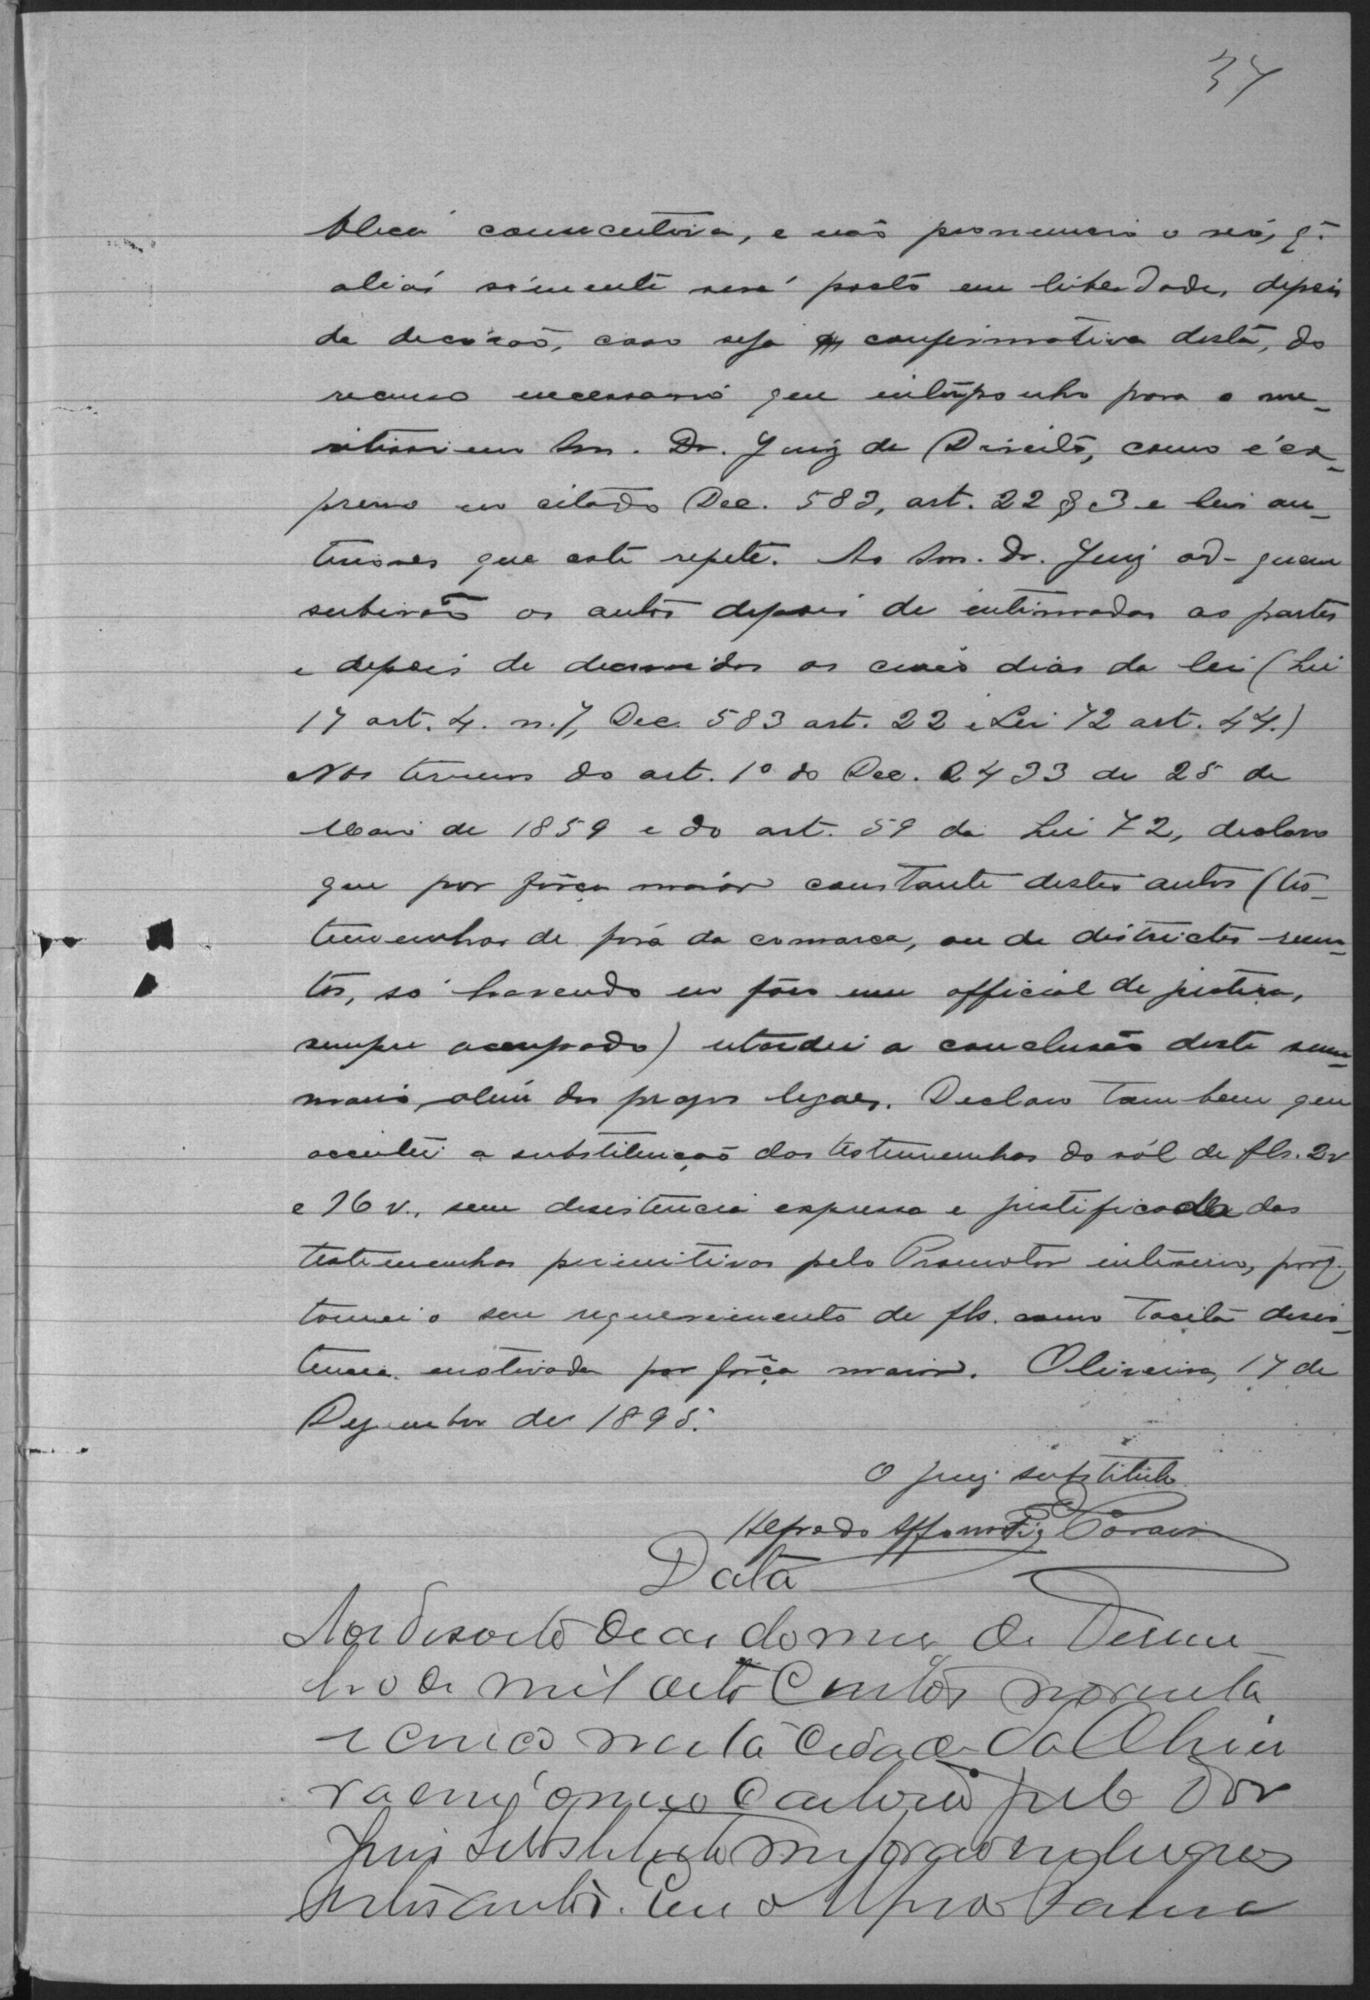 37
blica consecutiva, e não pronuncio o réo, q.
aliás sómente será posto em liberdade, depois
da decisão, caso seja confirmativa desta, do
recurso necessario que interponho para o me-
ritissimo Snr. Dr. Juiz de Direito, como é ex-
presso no citado Dec. 583, art. 22 § 3 e leis an-
teriores que este repete. Ao Snr. Dr. Juiz ad-quem
subirão os autos depois de intimadas as partes
e depois de decorridos os cinco dias da lei (Lei
17 art. 4. n. 7, Dec. 583 art. 22 e Lei 72 art. 44.)
Nos termos do art. 1º do Dec. 2433 de 25 de
Maio de 1859 e do art. 59 da Lei 72, declaro
que por força maior constante destes autos (tes-
temunhas de fóra da comarca, ou de districtos remo-
tos, só havendo no fôro um official de justiça,
sempre occupado) retardei a conclusão deste sum-
mario, além dos prazos legaes. Declaro tambem que
acceitei a substituição das testemunhas do ról de fls. 2v
e 16 v., sem desistencia expressa e justificada das
testemunhas primitivas pelo Promotor interino, porq.
tomei o seu requerimento de fls. como tacita desis-
tencia motivada por força maior. Oliveira, 17 de
Dezembro de 1895.
O Juiz substituto
Alfredo Affonso
Data
Aos desoito de Desem
bro de mil oito Centos noventa
e cinco nesta Cidade da Olivei
ra em meo Cartorio pelo Dor
Juis Substituto me forão entregues
estes autos. Eu